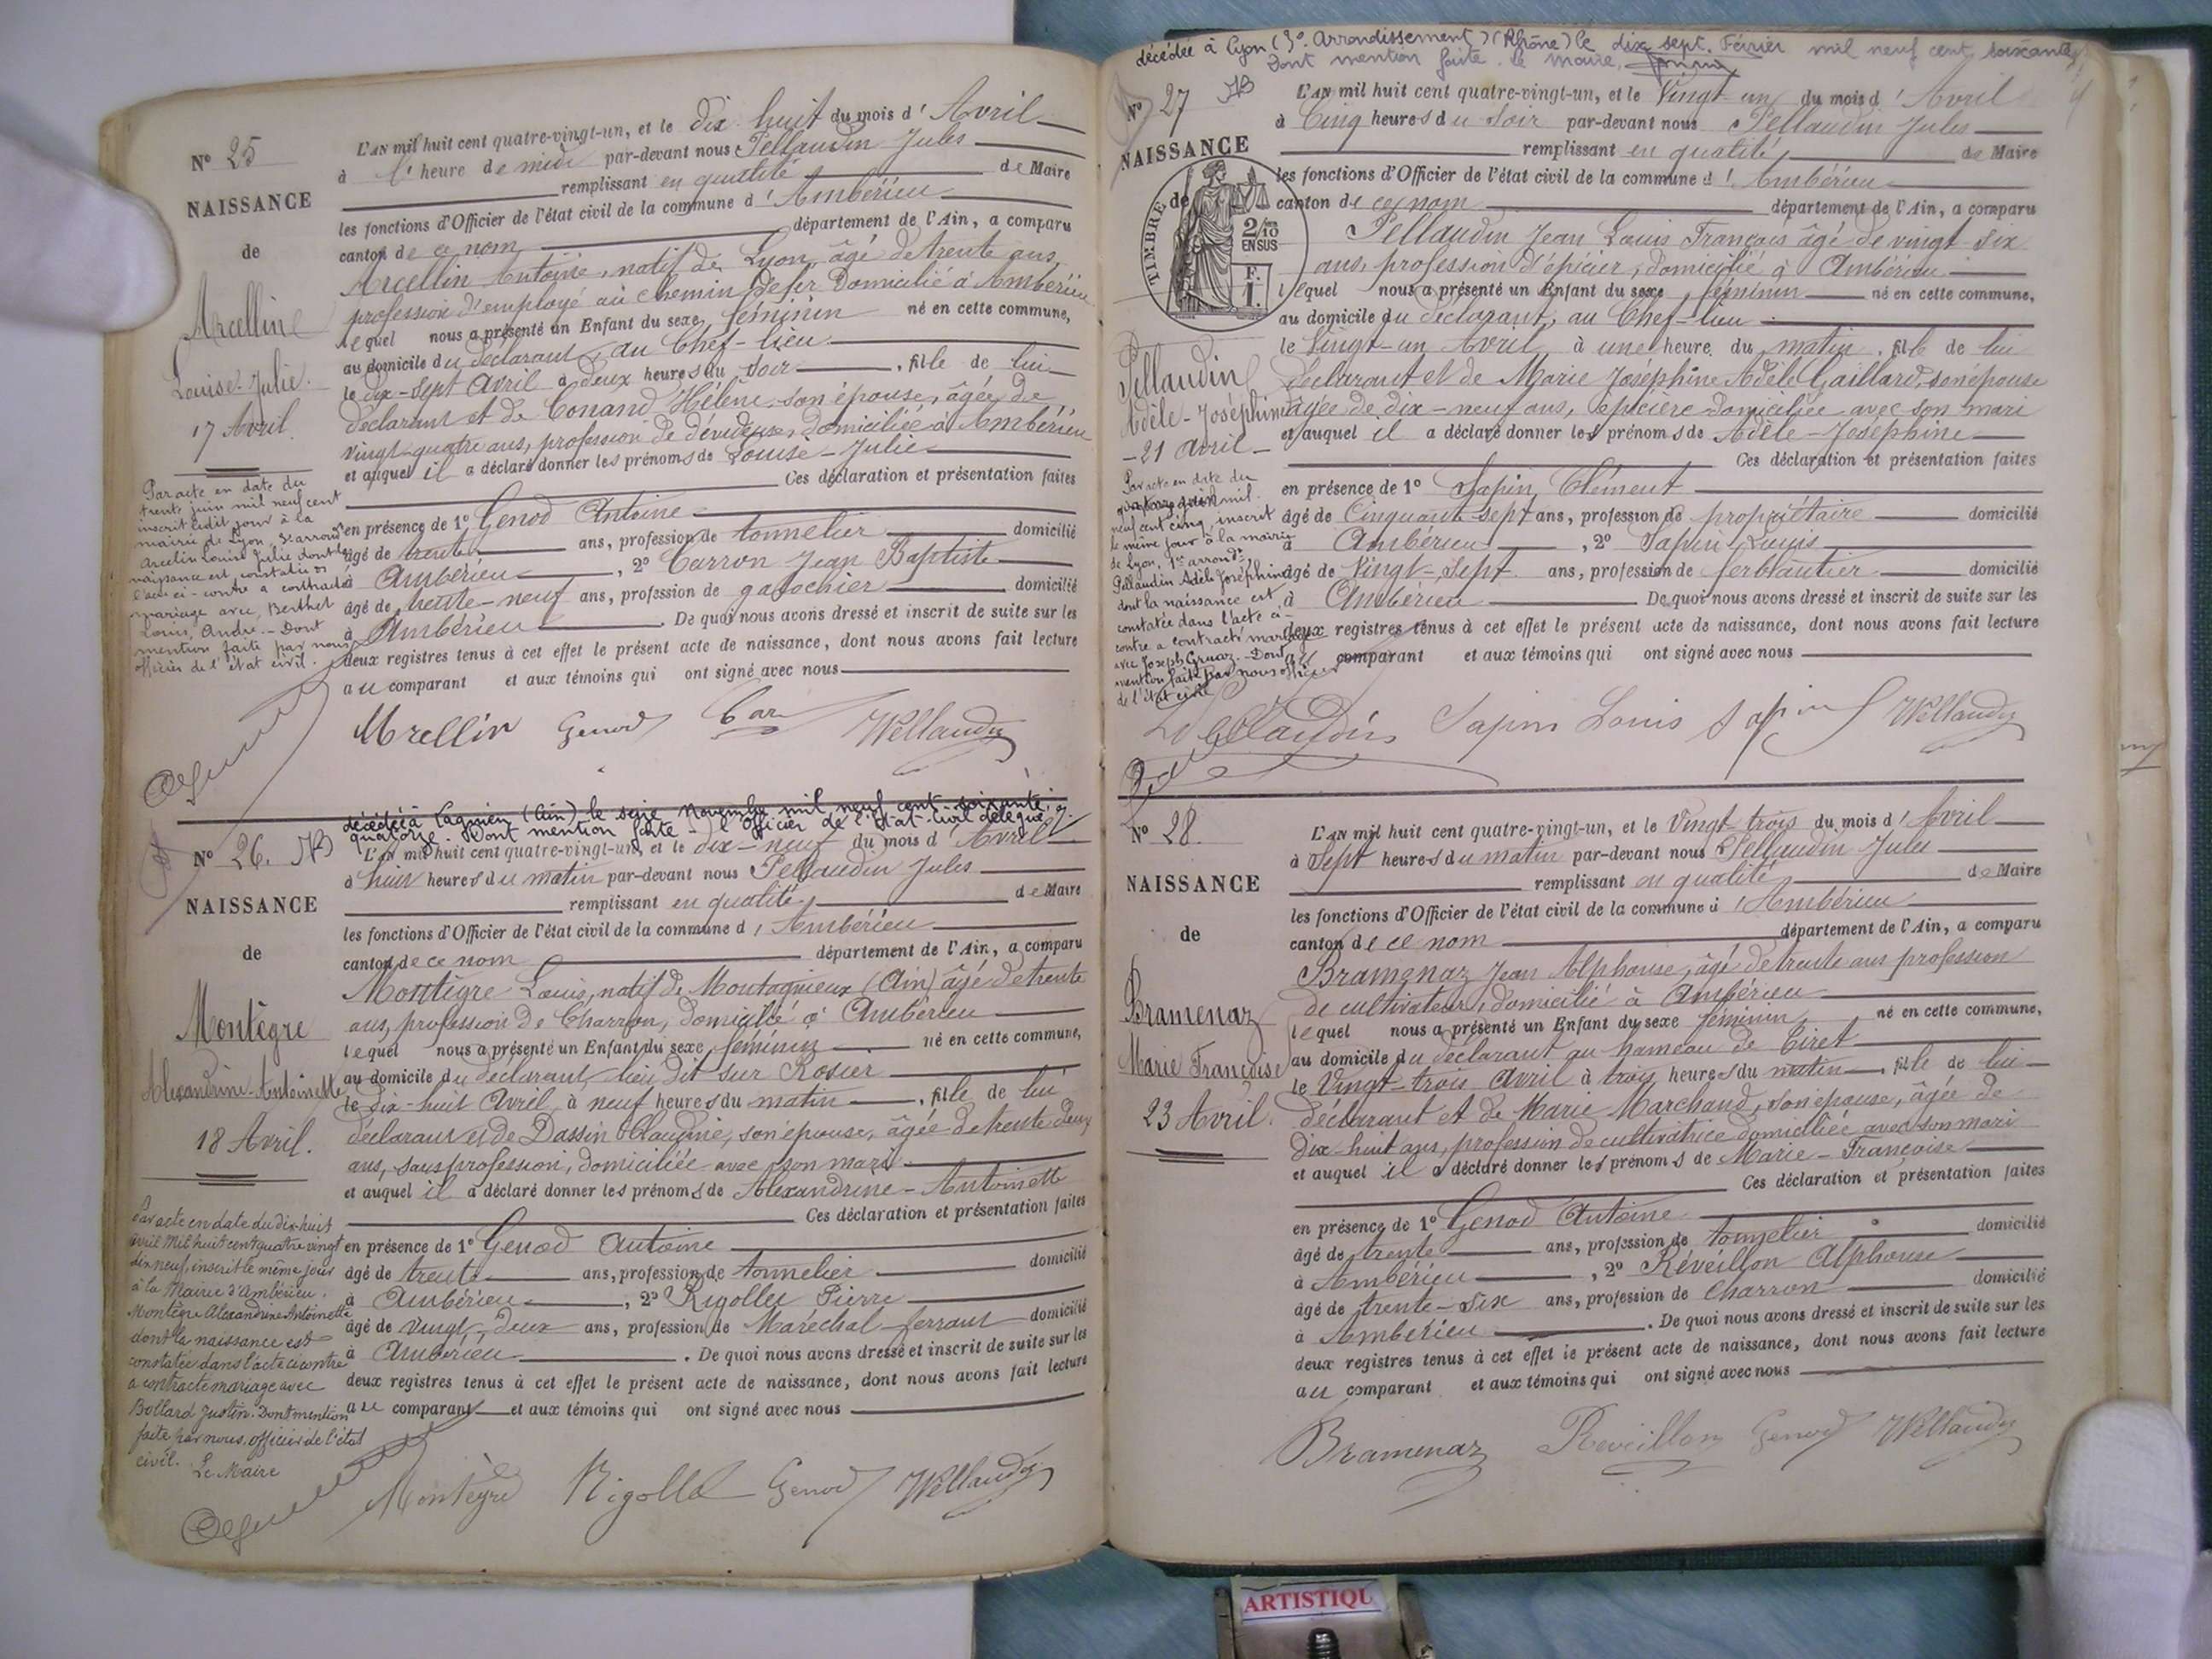 N° 25
NAISSANCE
de
Arcellin
Louise-Julie.
17 Avril.
Par acte en date du
trente juin mil neuf cent
inscrit ledit jour à la
mairie de Lyon, 3e arrond
Arcelin Louise Julie dont la
naissance est constatée ds
l'acte ci-contre a contracté
mariage avec Berthet
Louis, André. - Dont
mention faite par nous
officier de l'état civil.
L'AN mil huit cent quatre-vingt-un, et le dix huit du mois d'Avril
à l'heure de midi par-devant nous Pellaudin Jules
remplissant en qualité de Maire
les fonctions d'Officier de l'état civil de la commune d'Ambérieu
canton de ce nom département de l'Ain, a comparu
Arcellin Antoine, natif de Lyon, âgé de trente ans
profession d'employé au chemin de fer Domicilié à Ambérieu
lequel nous a présenté un Enfant du sexe féminin né en cette commune,
au domicile du déclarant, au Chef-lieu
le dix-sept Avril à deux heures du soir, fille de lui
déclarant et de Conand Hélène, son épouse, âgée de
vingt-quatre ans, profession de dévideuse, domiciliée à Ambérieu
et auquel il a déclaré donner les prénoms de Louise-Julie
Ces déclaration et présentation faites
en présence de 1° Genod Antoine
âgé de trente ans, profession de tonnelier domicilié
à Ambérieu, 2° Carron Jean Baptiste
âgé de trente-neuf ans, profession de domicilié
à Ambérieu. De quoi nous avons dressé et inscrit de suite sur les
deux registres tenus à cet effet le présent acte de naissance, dont nous avons fait lecture
au comparant et aux témoins qui ont signé avec nous
Arcellin Genod Car Pellaudin
décédée à Lagnieu (Ain) le seize novembre mil neuf cent soixante
quatorze. Dont mention faite - l'officier de l'Etat-Civil délégué,
N° 26.
NAISSANCE
de
Montègre
Alexandrine-Antoinette
18 Avril.
Par acte en date du dix-huit
avril Mil huit cent quatre vingt
dix neuf, inscrit le même jour
à la Mairie d'Ambérieu.
Montègre Alexandrine Antoinette
dont la naissance est
constatée dans l'acte ci contre
a contracté mariage avec
Bollard Justin. Dont mention
faite par nous, officier de l'état
civil. Le Maire
L'AN mil huit cent quatre-vingt-un, et le dix-neuf du mois d'Avril
à huit heures du matin par-devant nous Pellaudin Jules
remplissant en qualité de Maire
les fonctions d'Officier de l'état civil de la commune d'Ambérieu
canton de ce nom département de l'Ain, a comparu
Montègre Louis, natif de Montagnieux (Ain) âgé de trente
ans, profession de Charron, domicilié à Ambérieu
lequel nous a présenté un Enfant du sexe féminin né en cette commune,
au domicile du déclarant, lieu dit sur Rosier
le dix-huit Avril à neuf heures du matin, fille de lui
déclarant et de Dassin Claudine, son épouse, âgée de trente deux
ans, sans profession, domiciliée avec son mari
et auquel il a déclaré donner les prénoms de Alexandrine-Antoinette
Ces déclaration et présentation faites
en présence de 1° Genod Antoine
âgé de trente ans, profession de tonnelier domicilié
à Ambérieu, 2° Rigollet Pierre
âgé de vingt-deux ans, profession de Maréchal-ferrant domicilié
à Ambérieu. De quoi nous avons dressé et inscrit de suite sur les
deux registres tenus à cet effet le présent acte de naissance, dont nous avons fait lecture
au comparant et aux témoins qui ont signé avec nous
Montègre Rigollet Genod Pellaudin
décédée à Lyon (3e Arrondissement) (Rhône) le dix sept Février mil neuf cent soixante
Dont mention faite. le maire,
N° 27
NAISSANCE
de
TIMBRE
2/10
EN SUS
Pellaudin
Adèle-Joséphine
-21 Avril-
Par acte en date du
quatorze juin mil
neuf cent cinq, inscrit
le même jour à la mairie
de Lyon, 1er arrondt
Pellaudin Adèle Joséphine
dont la naissance est
constatée dans l'acte ci-
contre a contracté mariage
avec Joseph Gruaz. - Dont
mention faite par nous officier
de l'état civil
L'AN mil huit cent quatre-vingt-un, et le Vingt-un du mois d'Avril
à Cinq heures du Soir par-devant nous Pellaudin Jules
remplissant en qualité de Maire
les fonctions d'Officier de l'état civil de la commune d'Ambérieu
canton de ce nom département de l'Ain, a comparu
Pellaudin Jean Louis François âgé de vingt-six
ans, profession d'épicier, domicilié à Ambérieu
lequel nous a présenté un Enfant du sexe féminin né en cette commune,
au domicile du déclarant, au Chef-lieu
le Vingt-un Avril à une heure du matin, fille de lui
déclarant et de Marie Joséphine Adèle Gaillard, son épouse
âgée de dix-neuf ans, épicière domiciliée avec son mari
et auquel il a déclaré donner les prénoms de Adèle-Joséphine
Ces déclaration et présentation faites
en présence de 1° Sapin Clément
âgé de Cinquante-sept ans, profession de propriétaire domicilié
à Ambérieu, 2° Sapin Louis
âgé de Vingt-sept ans, profession de ferblantier domicilié
à Ambérieu De quoi nous avons dressé et inscrit de suite sur les
deux registres tenus à cet effet le présent acte de naissance, dont nous avons fait lecture
au comparant et aux témoins qui ont signé avec nous
Pellaudin Sapin Louis Sapin Pellaudin
N° 28.
NAISSANCE
de
Bramenaz
Marie Françoise
23 Avril.
L'AN mil huit cent quatre-vingt-un, et le Vingt-trois du mois d'Avril
à Sept heures du matin par-devant nous Pellaudin Jules
remplissant en qualité de Maire
les fonctions d'Officier de l'état civil de la commune d'Ambérieu
canton de ce nom département de l'Ain, a comparu
Bramenaz Jean Alphonse, âgé de trente ans profession
de cultivateur, domicilié à Ambérieu
lequel nous a présenté un Enfant du sexe féminin né en cette commune,
au domicile du déclarant au hameau de Tiret
le Vingt-trois Avril à trois heures du matin, fille de lui
déclarant et de Marie Marchand, son épouse, âgée de
dix-huit ans, profession de cultivatrice domiciliée avec son mari
et auquel il a déclaré donner les prénoms de Marie-Françoise
Ces déclaration et présentation faites
en présence de 1° Genod Antoine
âgé de trente ans, profession de tonnelier domicilié
à Ambérieu, 2° Réveillon Alphonse
âgé de trente-six ans, profession de Charron domicilié
à Ambérieu. De quoi nous avons dressé et inscrit de suite sur les
deux registres tenus à cet effet le présent acte de naissance, dont nous avons fait lecture
au comparant et aux témoins qui ont signé avec nous
Bramenaz Reveillon Genod Pellaudin
ARTISTIQU